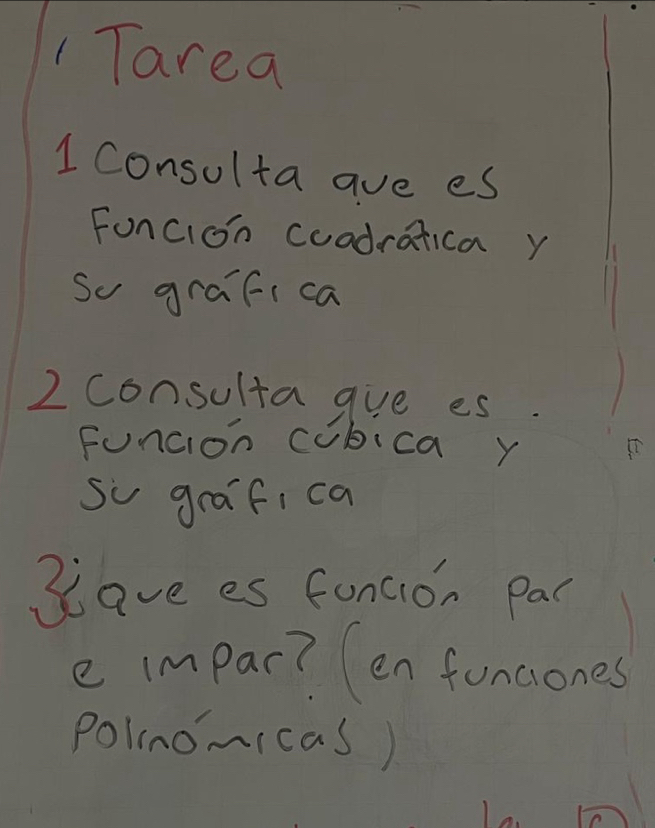 Tarea
1 Consulta que es
Función cuadrática y
su gráfica
2 consulta que es.
Función cúbica y
su gráfica
3 ¿que es función par
e impar? (en funciones
Polinómicas)